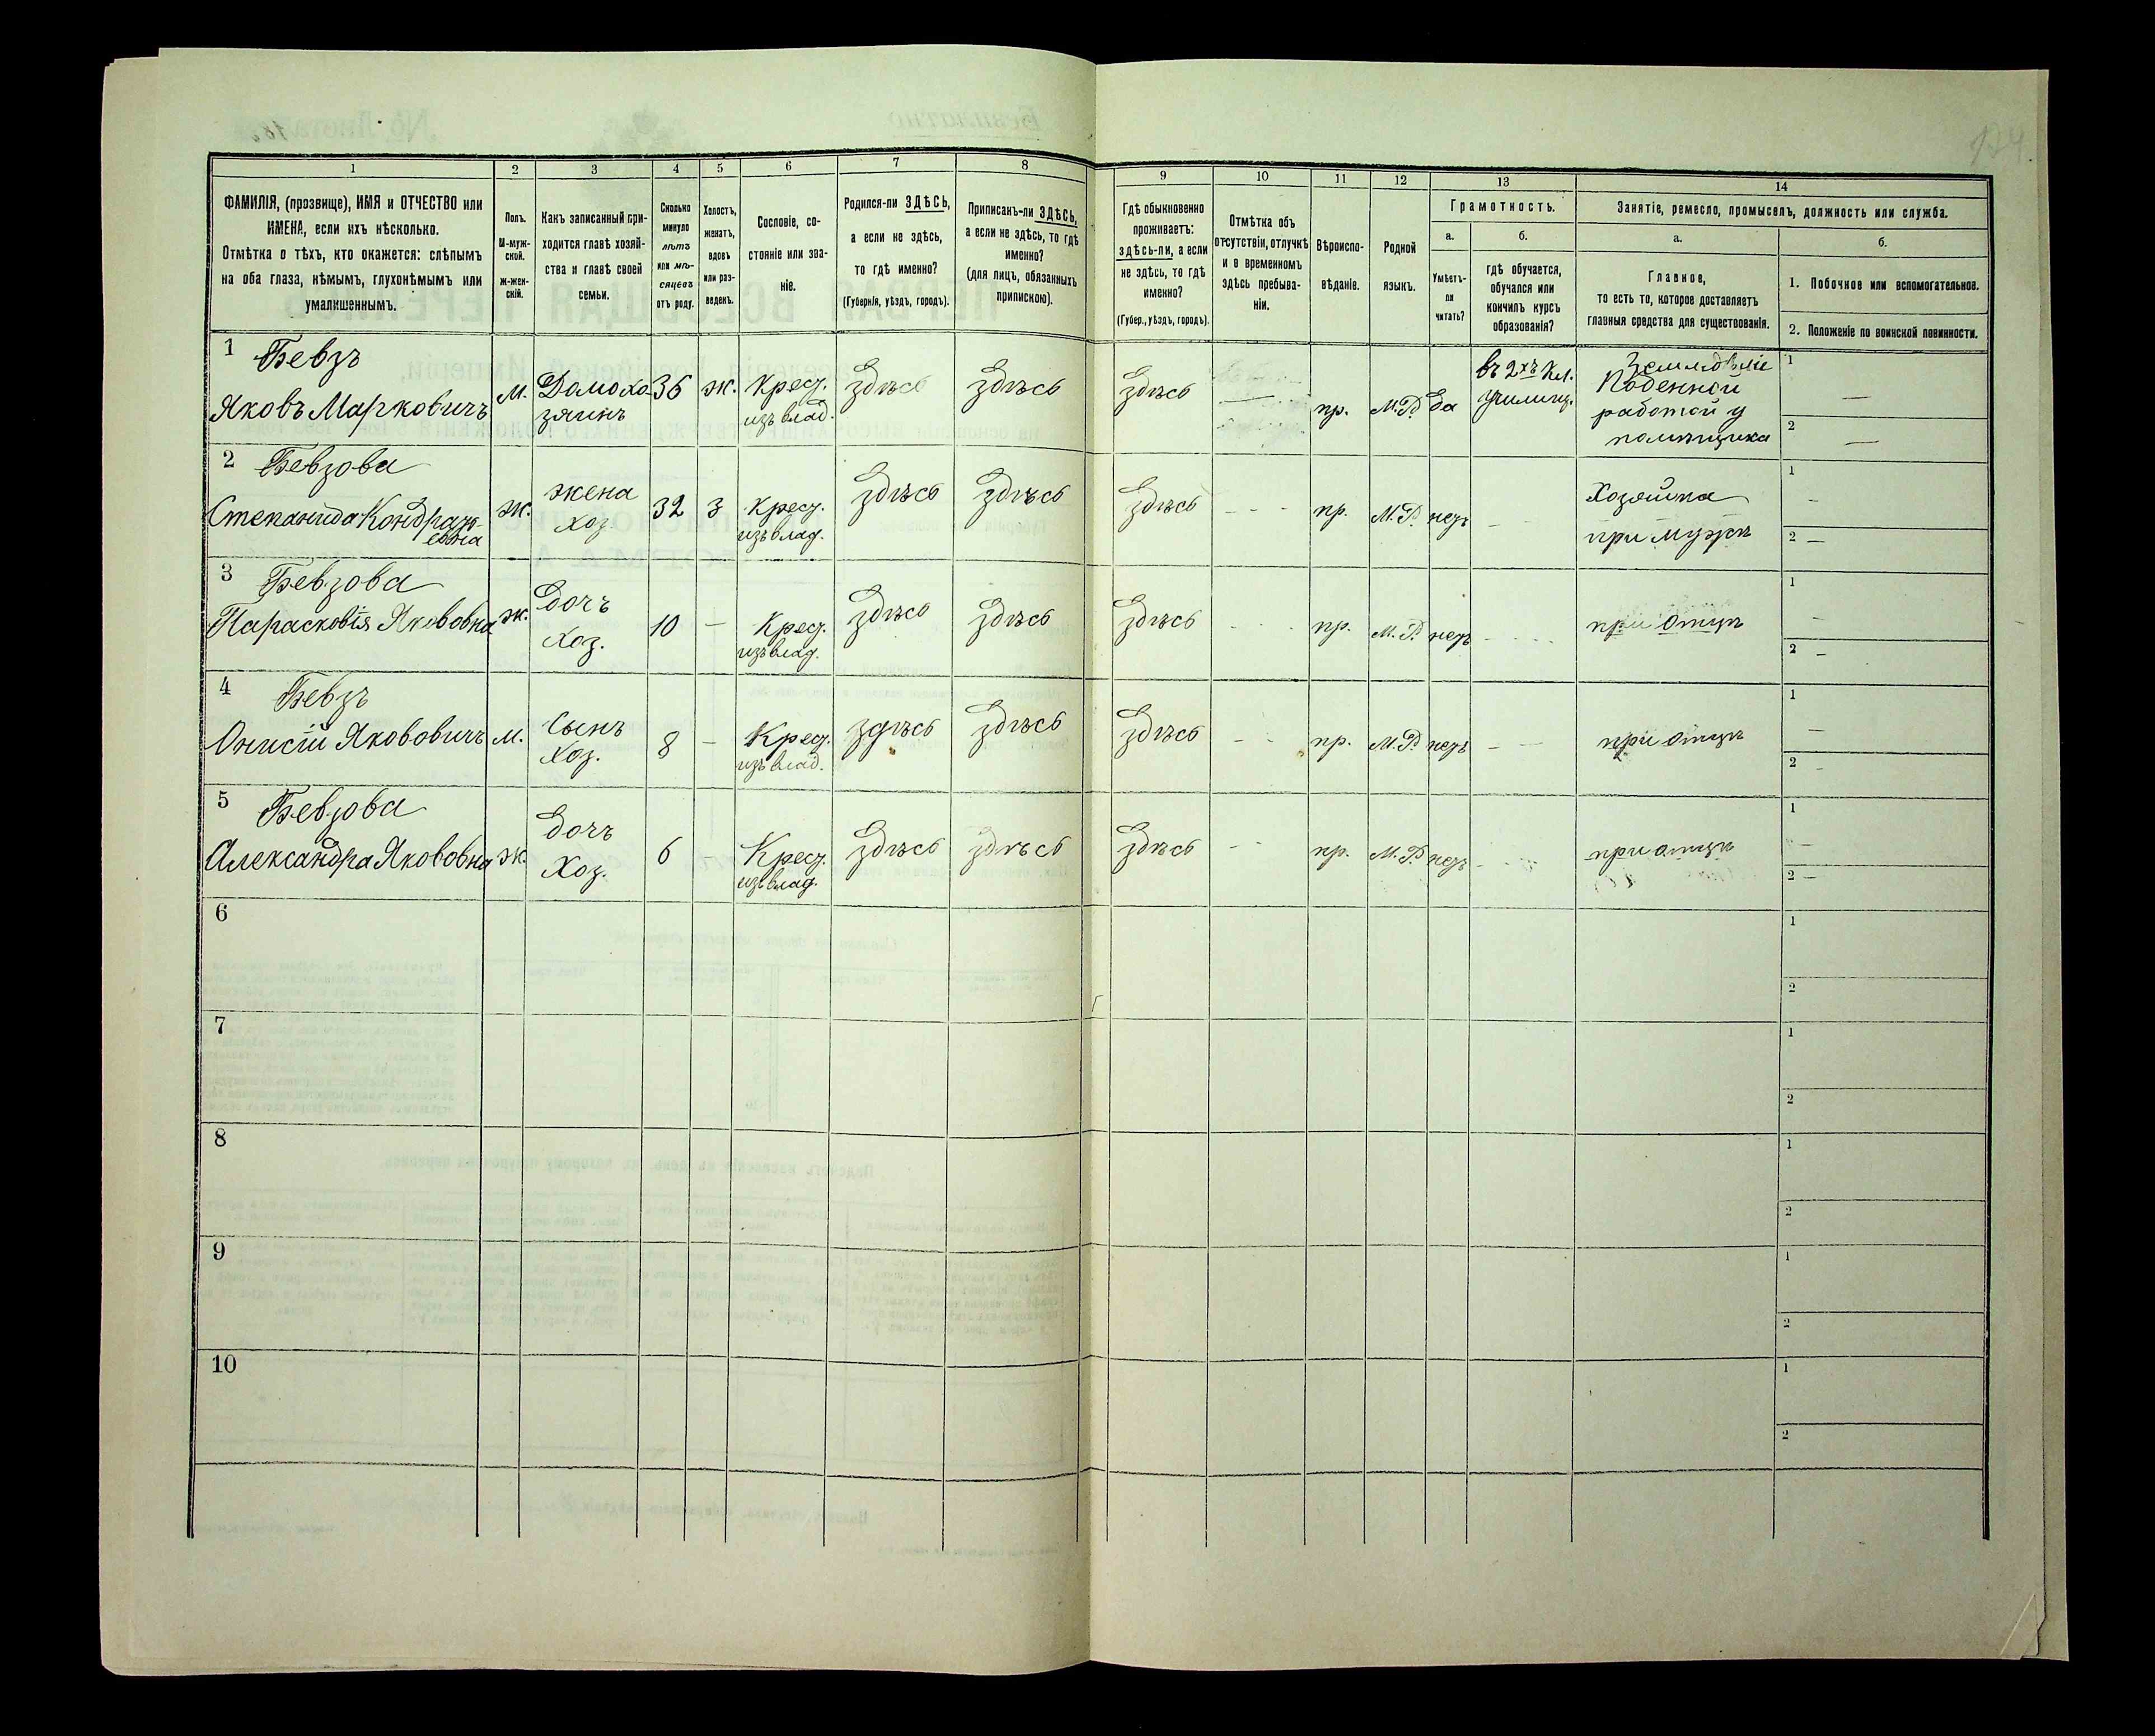 124.
1 2 3 4 5 6 7 8 9 10 11 12 13 14
ФАМИЛІЯ, (прозвище), ИМЯ и ОТЧЕСТВО или
ИМЕНА, если ихъ нѣсколько.
Отмѣтка о тѣхъ, кто окажется: слѣпымъ
на оба глаза, нѣмымъ, глухонѣмымъ или
умалишеннымъ.
Полъ.
М-муж-
ской.
Ж-жен-
скій.
Какъ записанный при-
ходится главѣ хозяй-
ства и главѣ своей
семьи.
Сколько
минуло
лѣтъ
или мѣ-
сяцевъ
отъ роду.
Холостъ,
женатъ,
вдовъ
или раз-
веденъ.
Сословіе, со-
стояніе или зва-
ніе.
Родился-ли ЗДѢСЬ,
а если не здѣсь,
то гдѣ именно?
(Губернія, уѣздъ, городъ).
Приписанъ-ли ЗДѢСЬ,
а если не здѣсь, то гдѣ
именно?
(для лицъ, обязанныхъ
припискою).
Гдѣ обыкновенно
проживаетъ:
здѣсь-ли, а если
не здѣсь, то гдѣ
именно?
(Губер., уѣздъ, городъ).
Отмѣтка объ
отсутствіи, отлучкѣ
и о временномъ
здѣсь пребыва-
ніи.
Вѣроиспо-
вѣданіе.
Родной
языкъ.
Грамотность.
а.
Умѣетъ-
ли
читать?
б.
гдѣ обучается,
обучался или
кончилъ курсъ
образованія?
Занятіе, ремесло, промыселъ, должность или служба.
а.
Главное,
то есть то, которое доставляетъ
главныя средства для существованія.
б.
1. Побочное или вспомогательное.
2. Положеніе по воинской повинности.
1 Бевзъ
Яковъ Марковичъ
м.
Домохо-
зяинъ
36
ж.
Крест.
изъ влад.
Здѣсь
Здѣсь
Здѣсь
—
пр.
М.Р.
да
въ 2хъ Кл.
училищ.
Земледѣліе
Поденной
работой у
помѣщика
1 —
2 —
2 Бевзова
Степанида Кондрать-
евна
ж.
жена
хоз.
32
з
Крест.
изъ влад.
Здѣсь
Здѣсь
Здѣсь
- - -
пр.
М.Р.
нетъ
-
Хозяйка
при мужѣ
1 -
2 —
3 Бевзова
Парасковія Якововна
ж.
Дочъ
Хоз.
10
—
Крест.
изъ влад.
Здѣсь
Здѣсь
Здѣсь
- - -
пр.
М.Р.
нетъ
- - - -
при отцѣ
1 -
2 -
4 Бевзъ
Онисій Яковovичъ
м.
Сынъ
Хоз.
8
—
Крест.
изъ влад.
здѣсь
Здѣсь
Здѣсь
- -
пр.
М.Р.
нетъ
- —
при отцѣ
1 -
2 -
5 Бевзова
Александра Якововна
ж.
Дочъ
Хоз.
6
—
Крест.
изъ влад.
Здѣсь
Здѣсь
Здѣсь
- -
пр.
М.Р.
нетъ
- -
при отцѣ
1 -
2 —
6
1
2
7
1
2
8
1
2
9
1
2
10
1
2